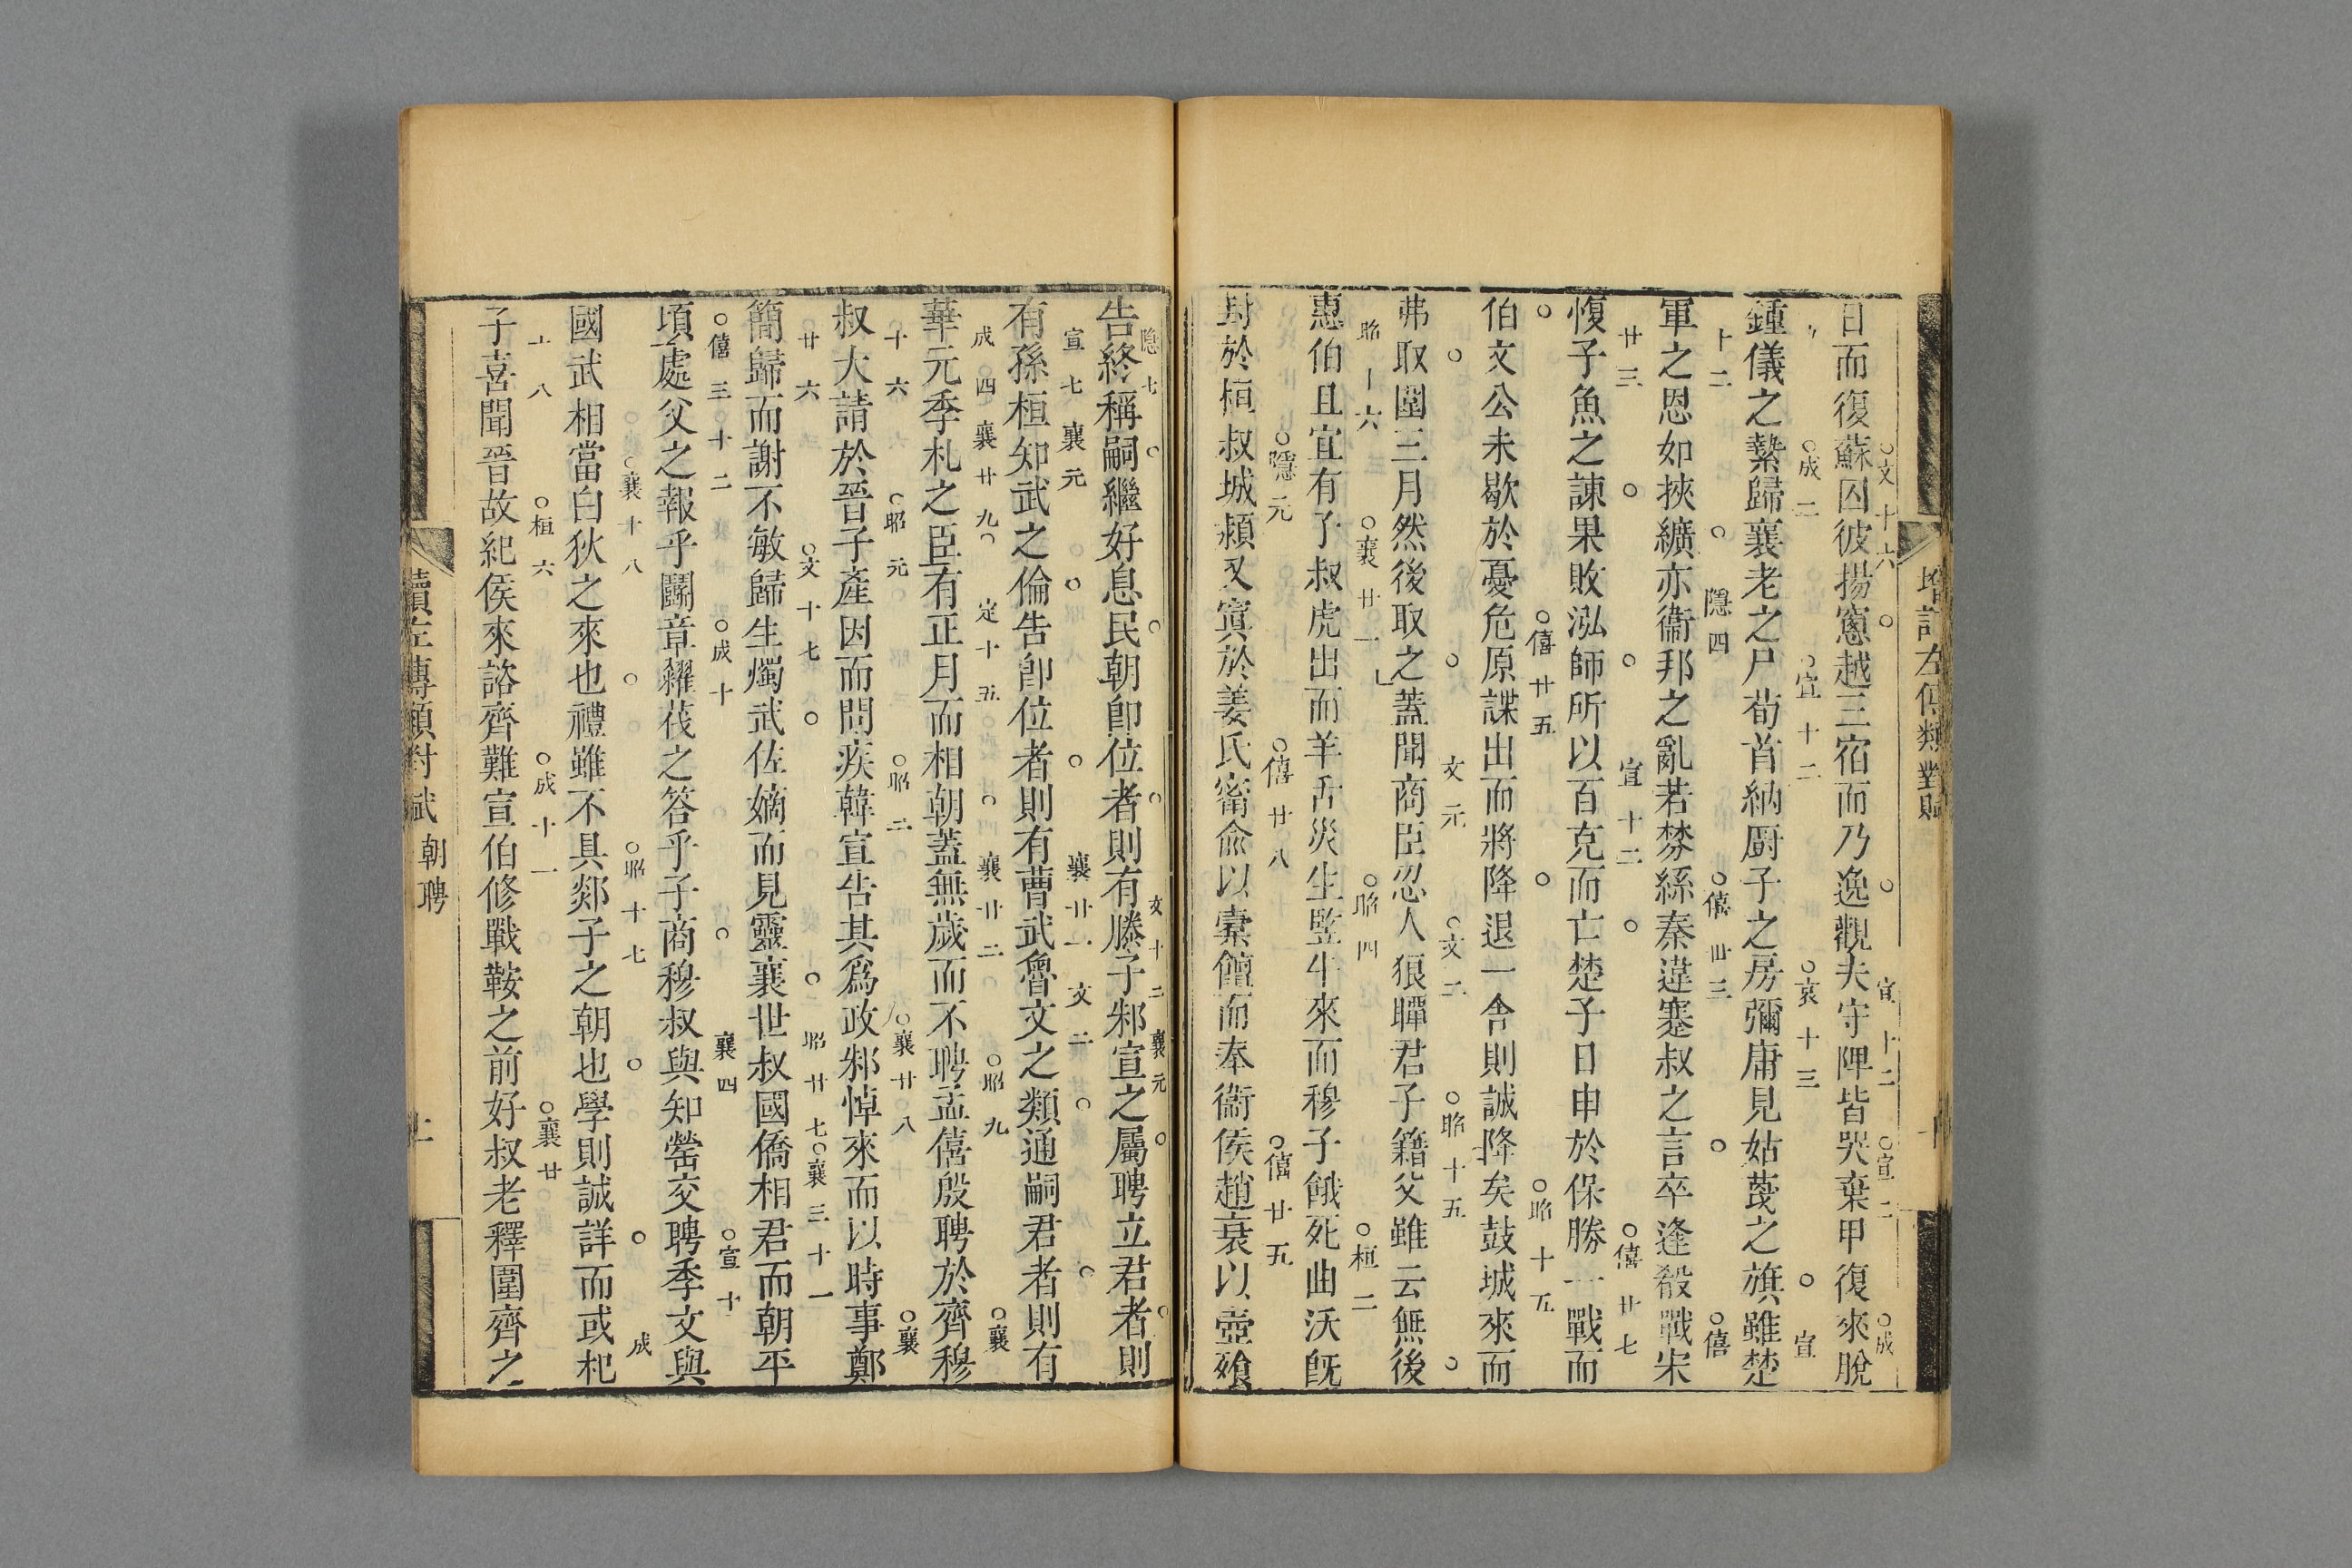 增訂左傳類對賦
文十六 宣十二 宣二 成
日而復蘇囚彼揚窻越三宿而乃逸觀夫守陴皆哭棄甲復來脫
成二 宣十二 哀十三 宣
鍾儀之縶歸襄老之尸荀首納厨子之房彌庸見姑蔑之旗雖楚
十二 隱四 僖卅三 僖
軍之恩如挾纊亦衞邦之亂若棼絲秦違蹇叔之言卒逢殽戰宋
廿三 宣十二 僖廿七
愎子魚之諫果敗泓師所以百克而亡楚子日申於保勝一戰而
僖廿五 昭十五
伯文公未歇於憂危原諜出而將降退一舍則誠降矣鼓城來而
文元 文二 昭十五
弗取圍三月然後取之蓋聞商臣忍人狼瞫君子籍父雖云無後
昭十六 襄廿一 昭四 桓二
惠伯且宜有子叔虎出而羊舌災生豎牛來而穆子餓死曲沃旣
隱元 僖廿八 僖廿五
封於桓叔城潁又寘於姜氏甯兪以槖饘而奉衞侯趙衰以壺飱
隱七 文十二 襄元
告終稱嗣繼好息民朝卽位者則有滕子邾宣之屬聘立君者則
宣七 襄元 襄廿一 文二
有孫桓知武之倫告卽位者則有曹武魯文之類通嗣君者則有
成四 襄廿九 定十五 襄廿二 昭九 襄
華元季札之臣有正月而相朝蓋無歲而不聘孟僖殷聘於齊穆
十六 昭元 昭二 襄廿八 襄
叔大請於晉子產因而問疾韓宣告其爲政邾悼來而以時事鄭
廿六 文十七 昭廿七 襄三十一
簡歸而謝不敏歸生燭武佐嫡而見靈襄世叔國僑相君而朝平
僖三十二 成十 襄四 宣十
頃處父之報乎鬬章糴茷之答乎子商穆叔與知罃交聘季文與
襄十八 昭十七 成
國武相當白狄之來也禮雖不具郯子之朝也學則誠詳而或杞
十八 桓六 成十一 襄廿
子喜聞晉故紀侯來諮齊難宣伯修戰鞍之前好叔老釋圍齊之
讀左傳類對賦 朝聘